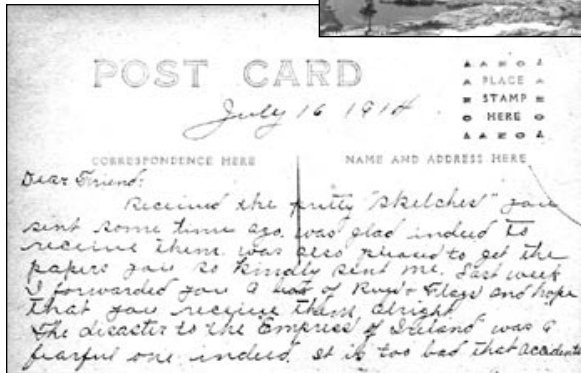 POST CARD
July 16 1914
PLACE
STAMP
HERE
CORRESPONDENCE HERE
NAME AND ADDRESS HERE
Dear Friend:
Received the pretty "sketches" you
sent some time ago. was glad indeed to
receive them. was also pleased to get the
papers you so kindly sent me. Last week
I forwarded you a of and Flags and hope
that you receive them alright.
The disaster to the Empress of Ireland was a
fearful one indeed. It is too bad that accidents